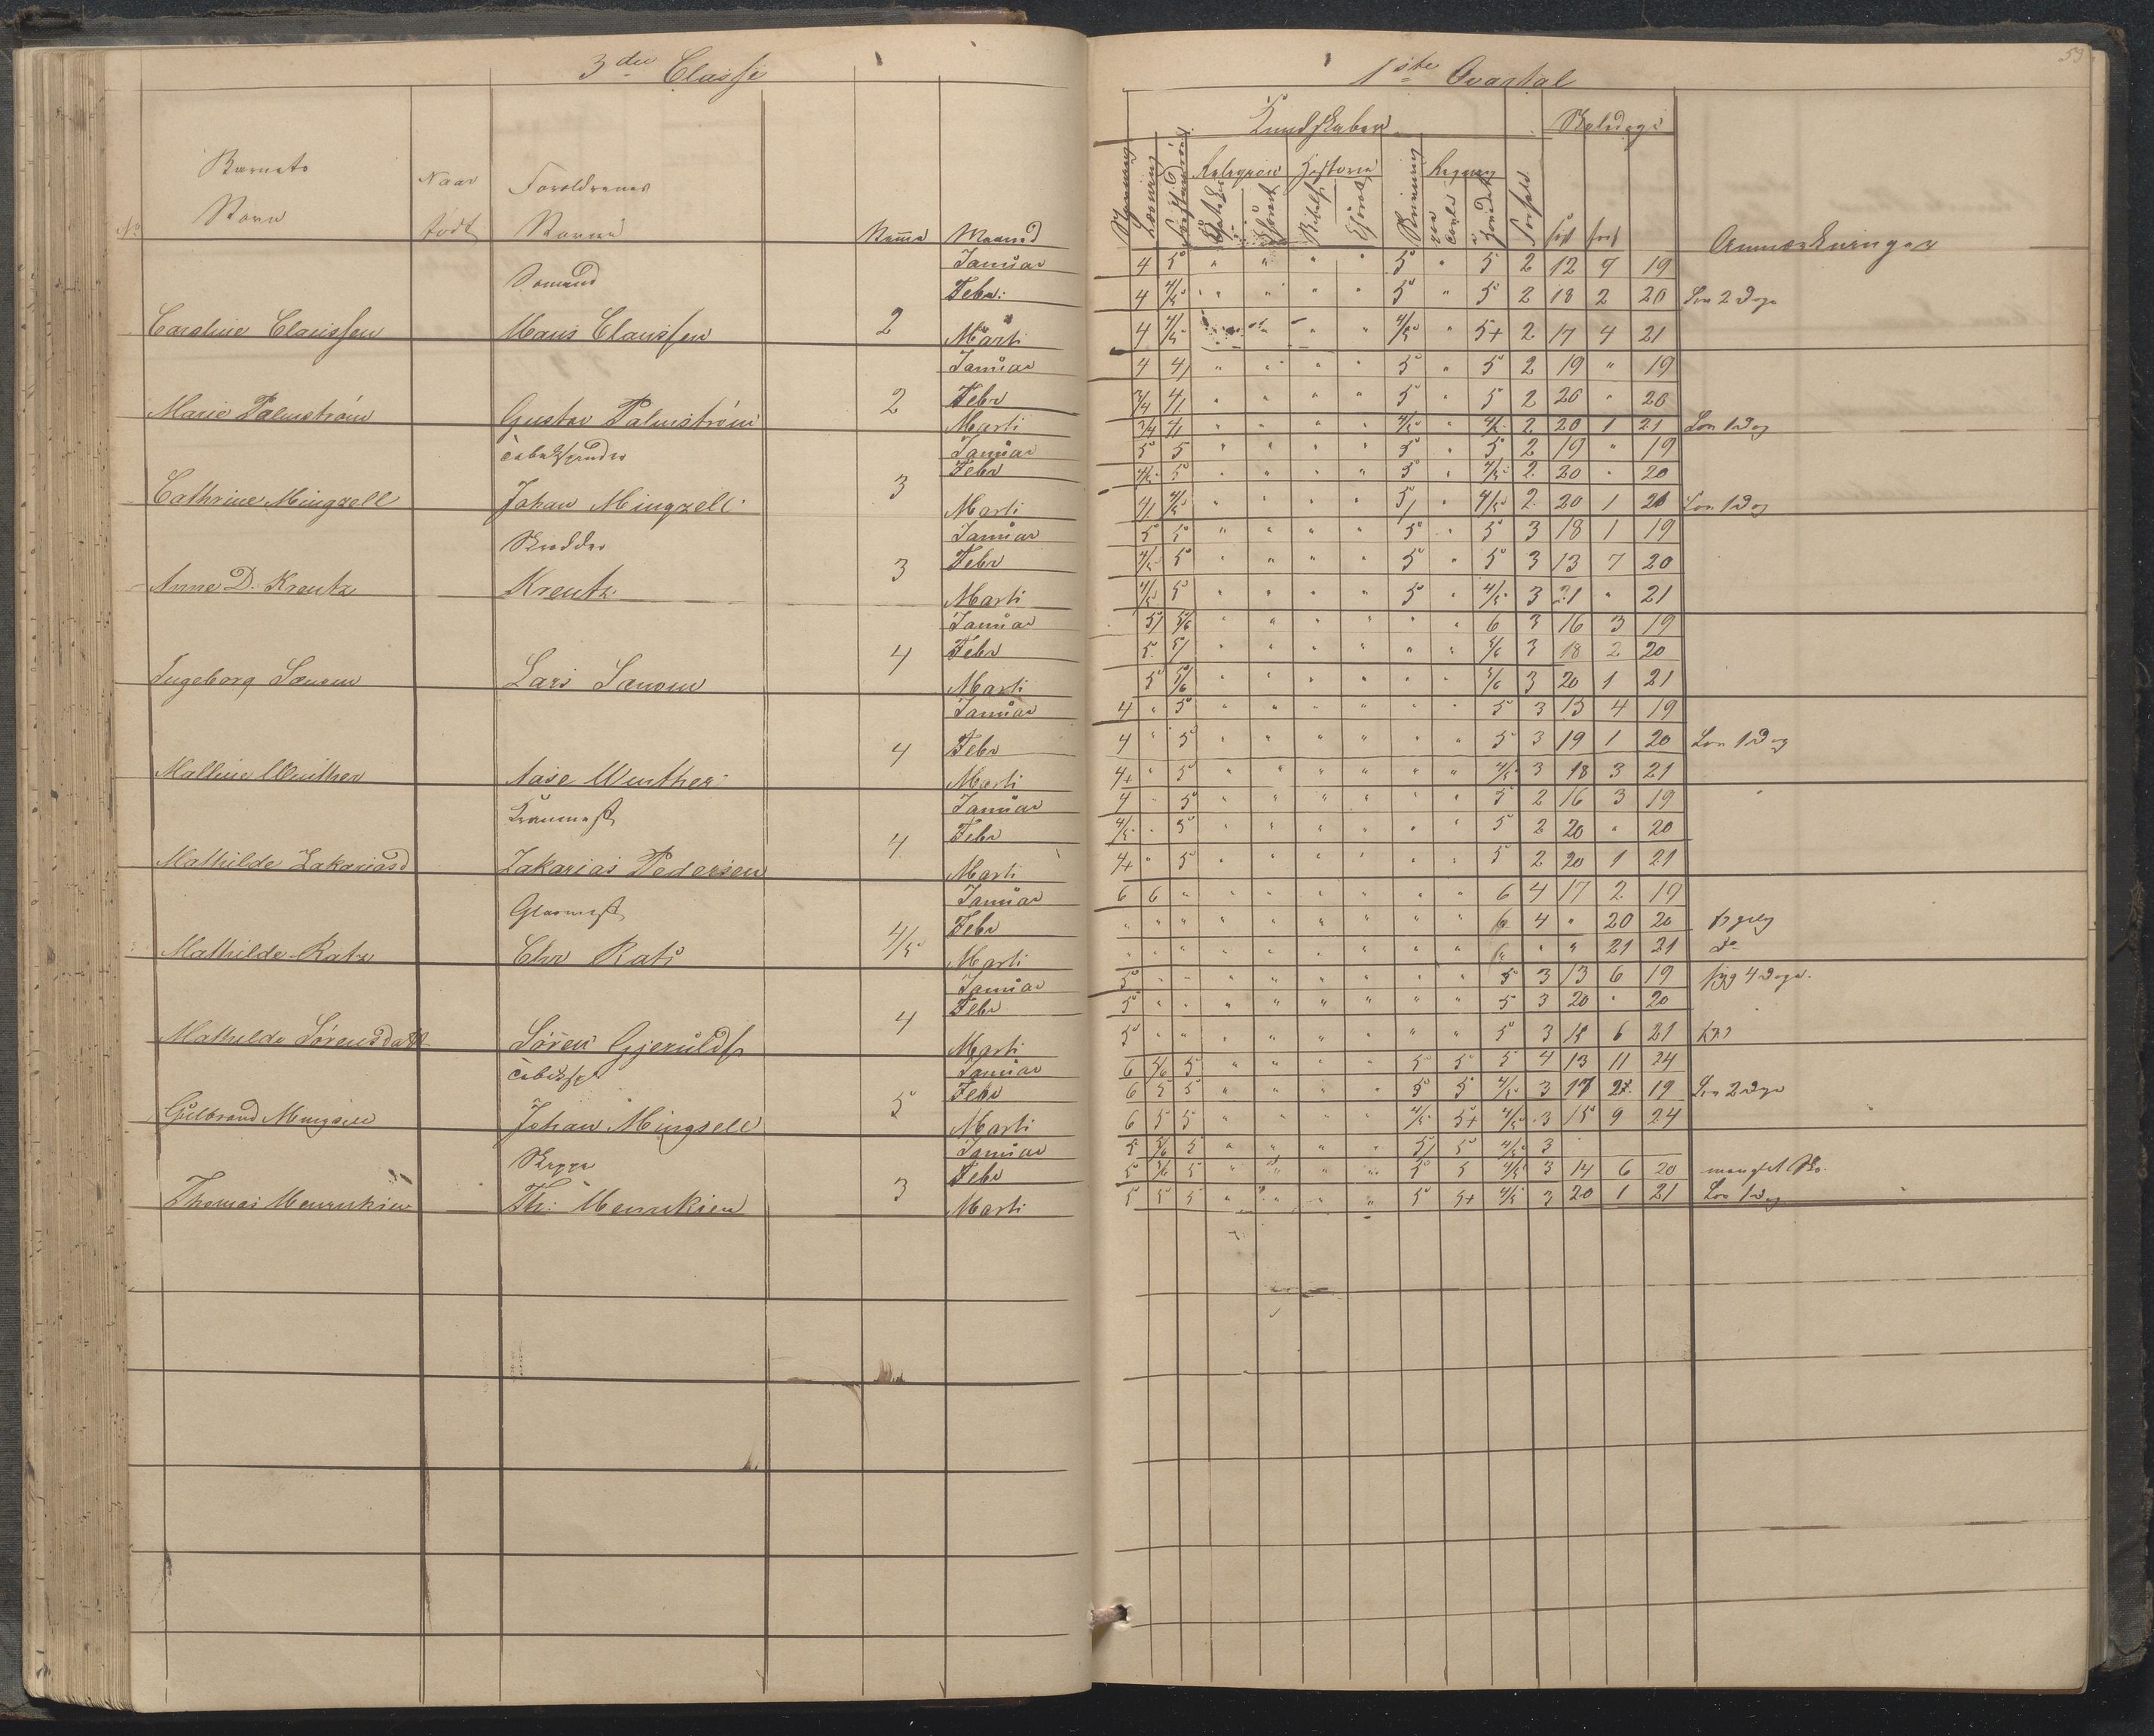 3die Classe
1ste Qvartal
53
Kundskaber
Skoledage
Religion Historie Regning
No
Barnets Navn
Naar født
Forældrenes Navne
Maaned
Læsning
Forhold
Anmærkninger
Januar 4 5 " " " " 5 " 5 2 12 7 19
Febr: 4 4/5 " " " " 5 " 5 2 18 2 20 Lov 2 Dage
Caroline Claussen
Claussen 2 Marti 4 4/5 " " 4/5 " 5+ 2 17 4 21
Januar 4 4/ " " " " 5 " 5 2 19 " 19
Febr 3/4 4/ " " " " 5 " 5 2 20 " 20
Marie Palmström Gustav Palmström 2 Marti 3/4 4/ " " " " 4/5 " 4/5 2 20 1 21 Lov 1 Dag
Januar 5 5 " " " " 5 " 5 2 19 " 19
Febr 4/5 5 " " " " 5 " 4/5 2 20 " 20
Cathrine Mingzell Johan Mingzell 3 Marti 4/ 4/5 " " " " 5/ " 4/5 2 20 1 21 Lov 1 Dag
Januar 5 5 " " " " 5 " 5 3 18 1 19
Febr 4/5 5 " " " " 5 " 5 3 13 7 20
Anne D. Kreutz Kreutz 3 Marti 4/5 5 " " " " 5 " 4/5 3 21 " 21
Januar 5/ 5/6 " " " " " " 6 3 16 3 19
Febr 5 5/ " " " " " " 5/6 3 18 2 20
Ingeborg Lars 4 Marti 5 5/6 " " " " " " 5/6 3 20 1 21
Januar 4 " 5 " " " " " " 5 3 15 4 19
Febr 4 " 5 " " " " " " 5 3 19 1 20 Lov 1 Dag
Malline Winther Aase Winther 4 Marti 4+ " 5 " " " " " " 4/5 3 18 3 21
Januar 4 " 5 " " " " " " 5 2 16 3 19
Febr 4/5 " 5 " " " " " " 5 2 20 " 20
Mathilde Zakariasd Zakarias Pedersen 4 Marti 4+ " 5 " " " " " " 5 2 20 1 21
Januar 6 6 " " " " " " " 6 4 17 2 19
Febr " " " " " " " " " 6 4 " 20 20
Mathilde Ratz Chr Rats 4/5 Marti " " " " " " " " " " " 21 21 do
Januar 5 " " " " " " " " 5 3 13 6 19 syg 4 Dage.
Febr 5 " " " " " " " " 5 3 20 " 20
Mathilde Sørensdatt Søren Gjeruldsen 4 Marti 5 " " " " " " " " 5 3 15 6 21
Januar 6 5/6 5 " " " " 5 5 5 4 13 11 24
Febr 6 5 5 " " " " 5 5 4/5 3 17 2 19 Lov 2 Dage
Gulbrand Mingzell Johan Mingzell 5 Marti 6 5 5 " " " " 4/5 5+ 4/5 3 15 9 24
Januar 5 5/6 5 " " " " 5/ 5 4/5 3
Febr 5 5/6 5 " " " " 5 5 4/5 3 14 6 20
Thomas Th: 3 Marti 5 5 5 " " " " 5 5+ 4/5 3 20 1 21 Lov 1 Dag